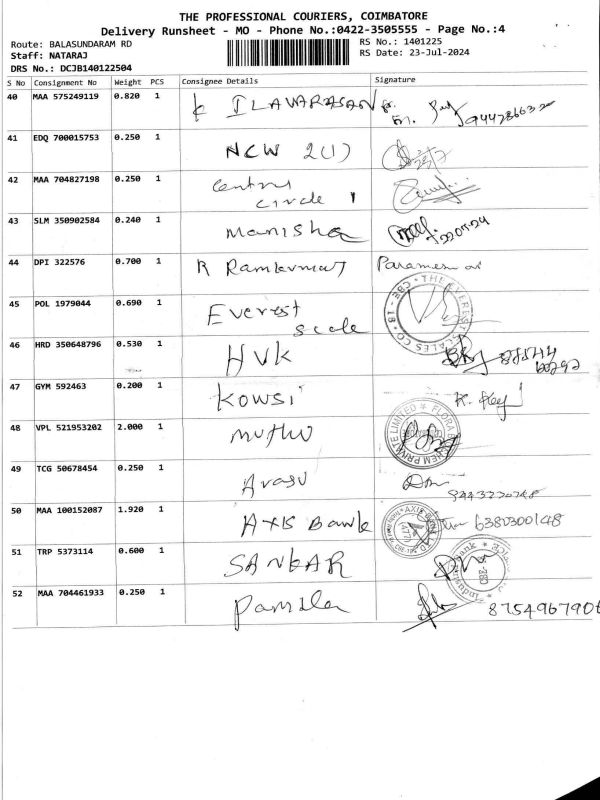 THE PROFESSIONAL COURIERS, COIMBATORE
Delivery Runsheet - MO - Phone No.:0422-3505555 - Page No.:4
Route: BALASUNDARAM RD RS No.: 1401225
Staff: NATARAJ RS Date: 23-Jul-2024
DRS No.: DCJB140122504
S No Consignment No Weight PCS Consignee Details Signature
40 MAA 575249119 0.820 1 K ILAVARASAN
41 EDQ 700015753 0.250 1 NCW 2(1)
42 MAA 704827198 0.250 1 Central
circle 1
43 SLM 350902584 0.240 1 Manisha
44 DPI 322576 0.700 1 R
45 POL 1979044 0.690 1 Everest
scale
46 HRD 350648796 0.530 1 HVK
47 GYM 592463 0.200 1 Kowsi
48 VPL 521953202 2.000 1 muthu
49 TCG 50678454 0.250 1 Arasu
50 MAA 100152087 1.920 1 AXIS Bank 6380300148
51 TRP 5373114 0.600 1 SANKAR
52 MAA 704461933 0.250 1 Pamila 8754967906